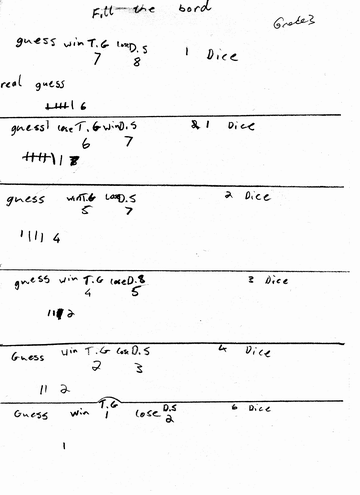 Fill the bord
Grade 3
guess win T.G lose D.S 1 Dice
7 8
real guess
6
guess lose T.G win D.S 1 Dice
6 7
guess win T.G lose D.S 2 Dice
5 7
4
guess win T.G lose D.S 3 Dice
4 5
2
Guess win T.G lose D.S 4 Dice
2 3
2
Guess win T.G lose D.S 6 Dice
1 2
1